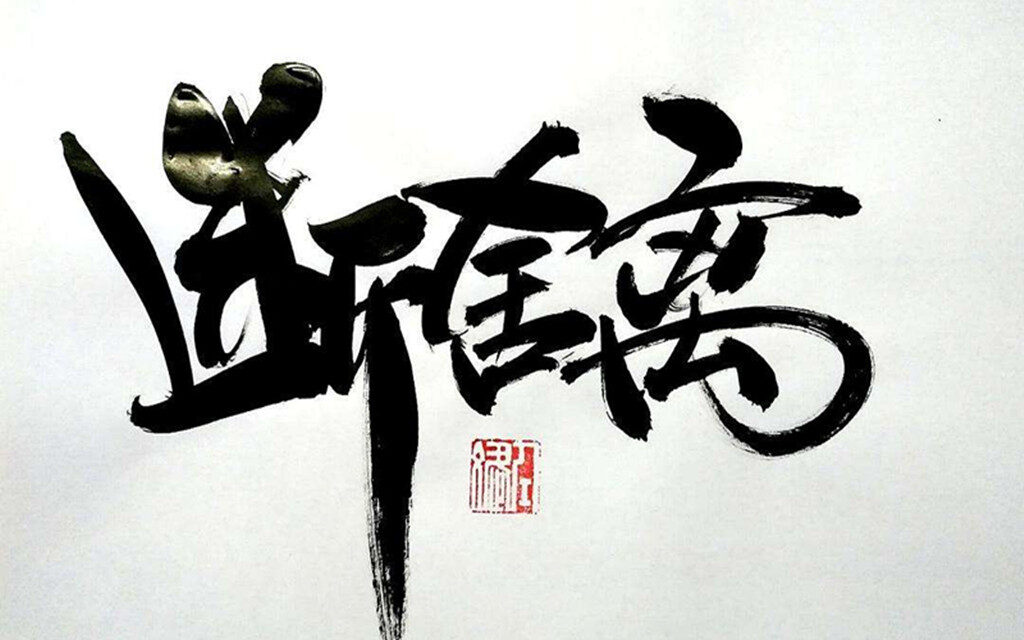 断舍离